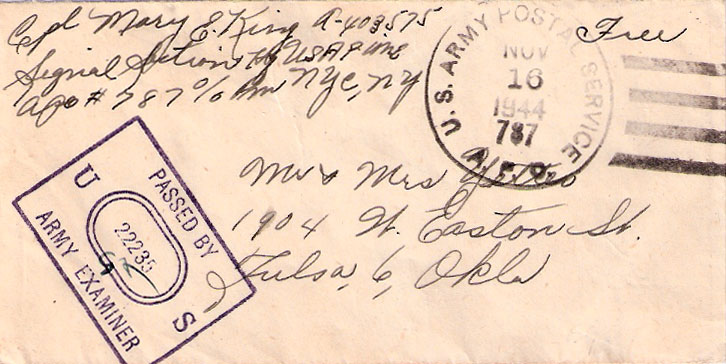 Cpl Mary E. King A-403575
Signal Section Hq USAFIME
APO # 787 c/o Pm NYC, NY
Free
U.S. ARMY POSTAL SERVICE
NOV
16
1944
787
A.P.O.
PASSED BY
U S
22235
ARMY EXAMINER
Mr & Mrs
1904 W. Easton St.
Tulsa, 6, Okla